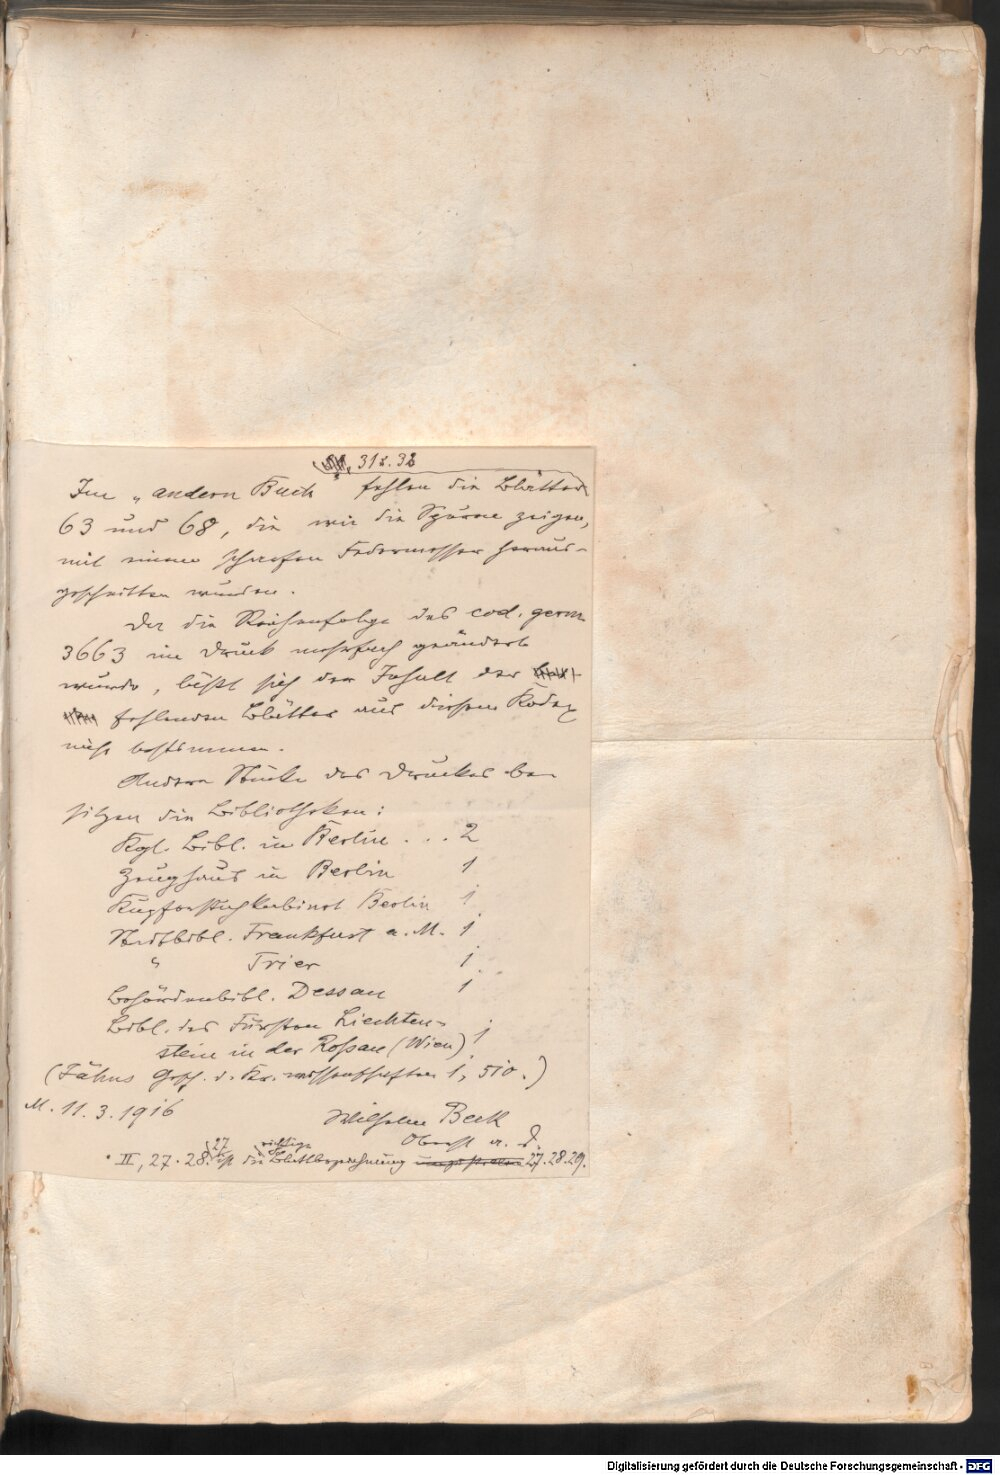 31 u. 32
Im „andern Buch" fehlen die Blätter
63 und 68, die wie die Spuren zeigen,
mit einem scharfen Federmesser heraus-
geschnitten wurden.
Da die Reihenfolge des cod. germ
3663 im Druck mehrfach geändert
wurde, läßt sich der Inhalt der
fehlenden Blätter aus diesem Kodex
nicht bestimmen.
Andere Stücke des Druckes be-
sitzen die Bibliotheken:
Kgl. Bibl. in Berlin . . . 2
Zeughaus in Berlin 1
Kupferstichkabinet Berlin 1
Stadtbibl. Frankfurt a. M. 1
" Trier 1
Behördenbibl. Dessau 1
Bibl. des Fürsten Liechten-
stein in der Roßau (Wien) 1
(Jähns Gesch. d. Kr. wissenschaften 1, 510.)
M. 11. 3. 1916
Wilhelm Beck
Oberst a. D.
27 richtige
II, 27. 28. ist die Blattbezeichnung 27. 28. 29.
Digitalisierung gefördert durch die Deutsche Forschungsgemeinschaft - DFG